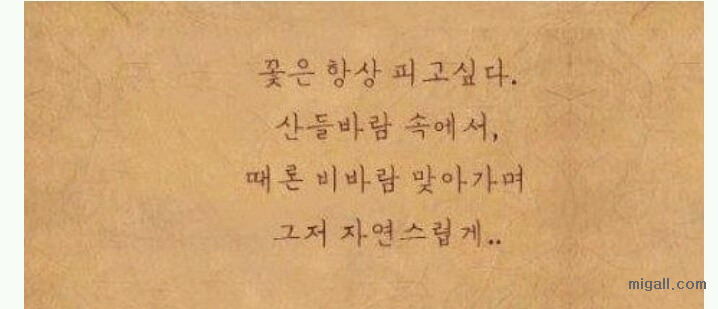 꽃은 항상 피고싶다.
산들바람 속에서,
때론 비바람 맞아가며
그저 자연스럽게..
migall.com